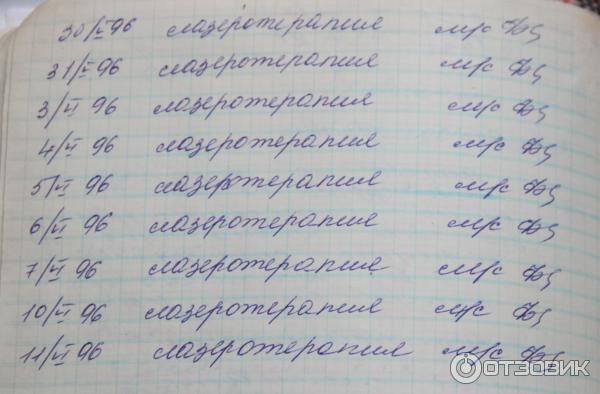 30/V 96 лазеротерапия м/с
31/V 96 лазеротерапия м/с
3/VI 96 лазеротерапия м/с
4/VI 96 лазеротерапия м/с
5/VI 96 лазеротерапия м/с
6/VI 96 лазеротерапия м/с
7/VI 96 лазеротерапия м/с
10/VI 96 лазеротерапия м/с
11/VI 96 лазеротерапия м/с
ОТЗОВИК